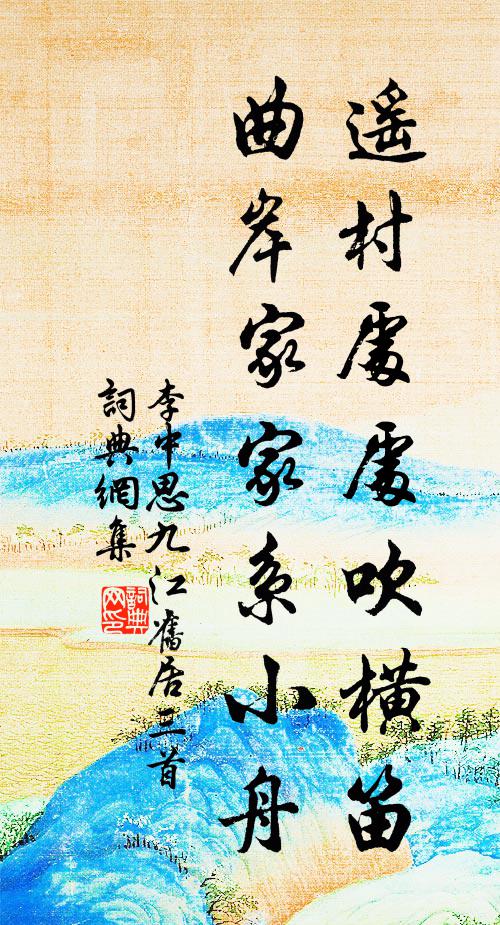 遥村處處吹橫笛
曲岸家家系小舟
李中思九江舊居三首
詞典網集
詞典
网印